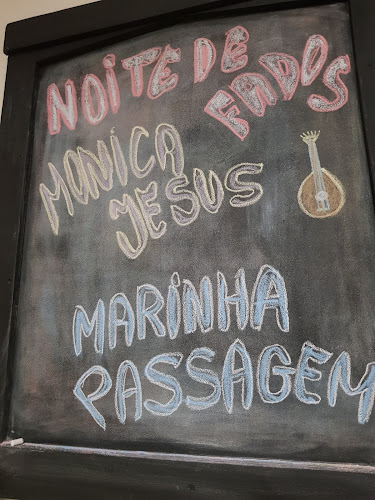 NOITE DE
FADOS
MONICA
JESUS
MARINHA
PASSAGEM